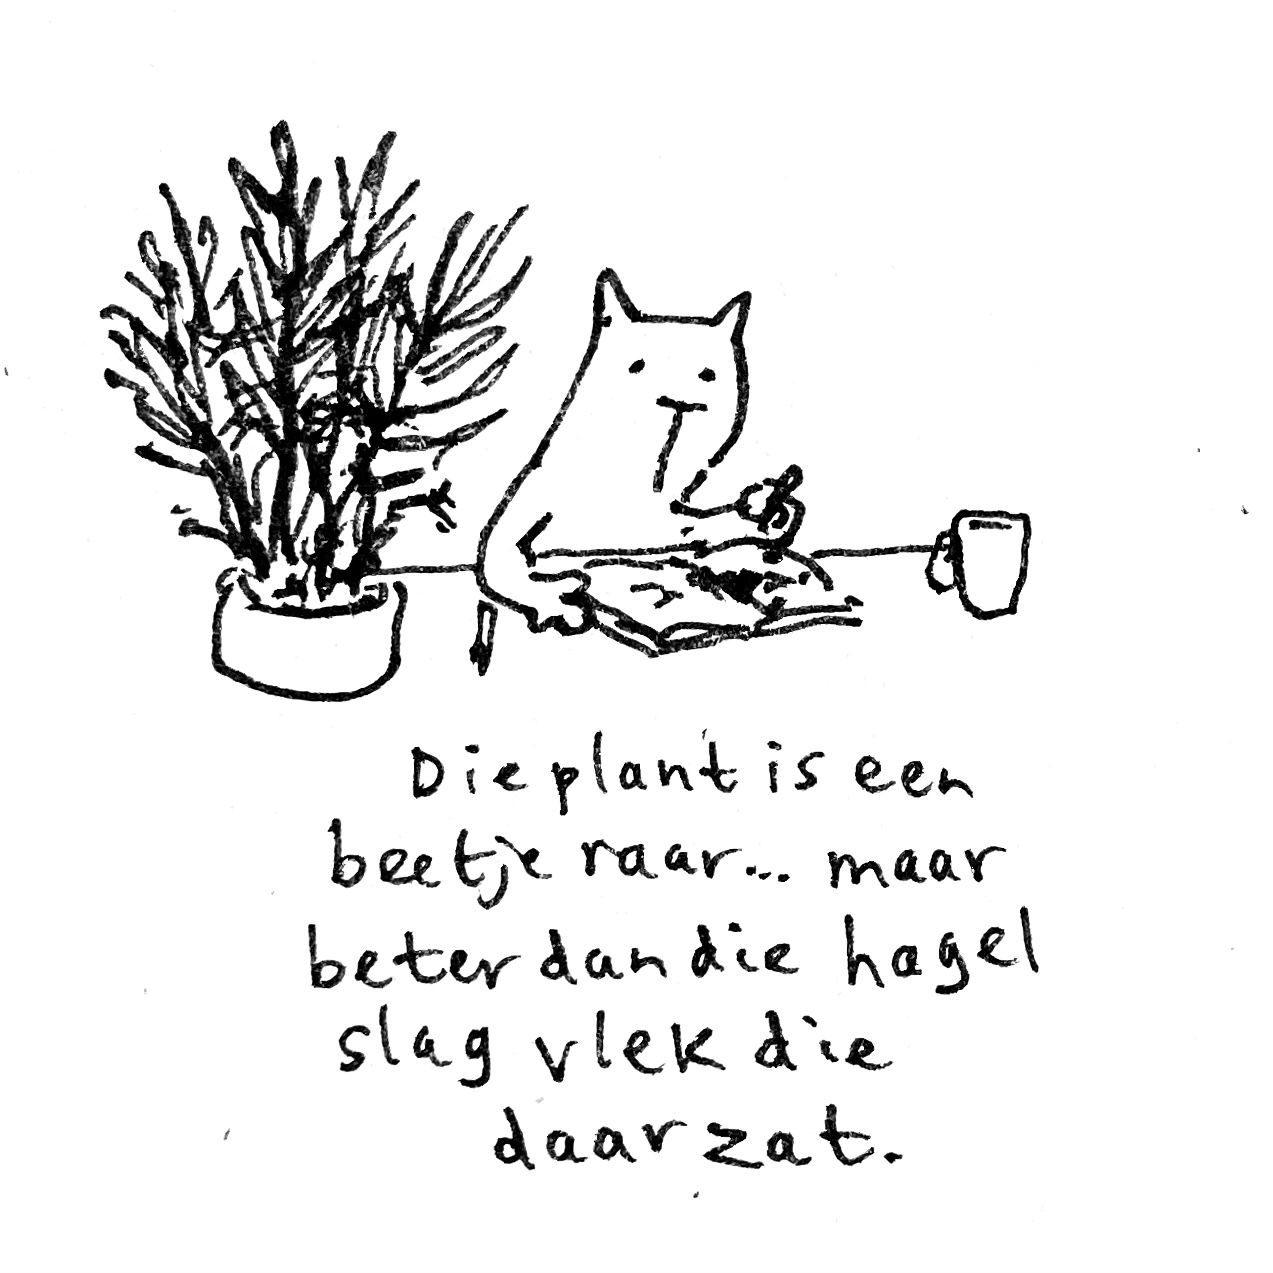 Die plant is een
beetje raar... maar
beter dan die hagel
slag vlek die
daar zat.